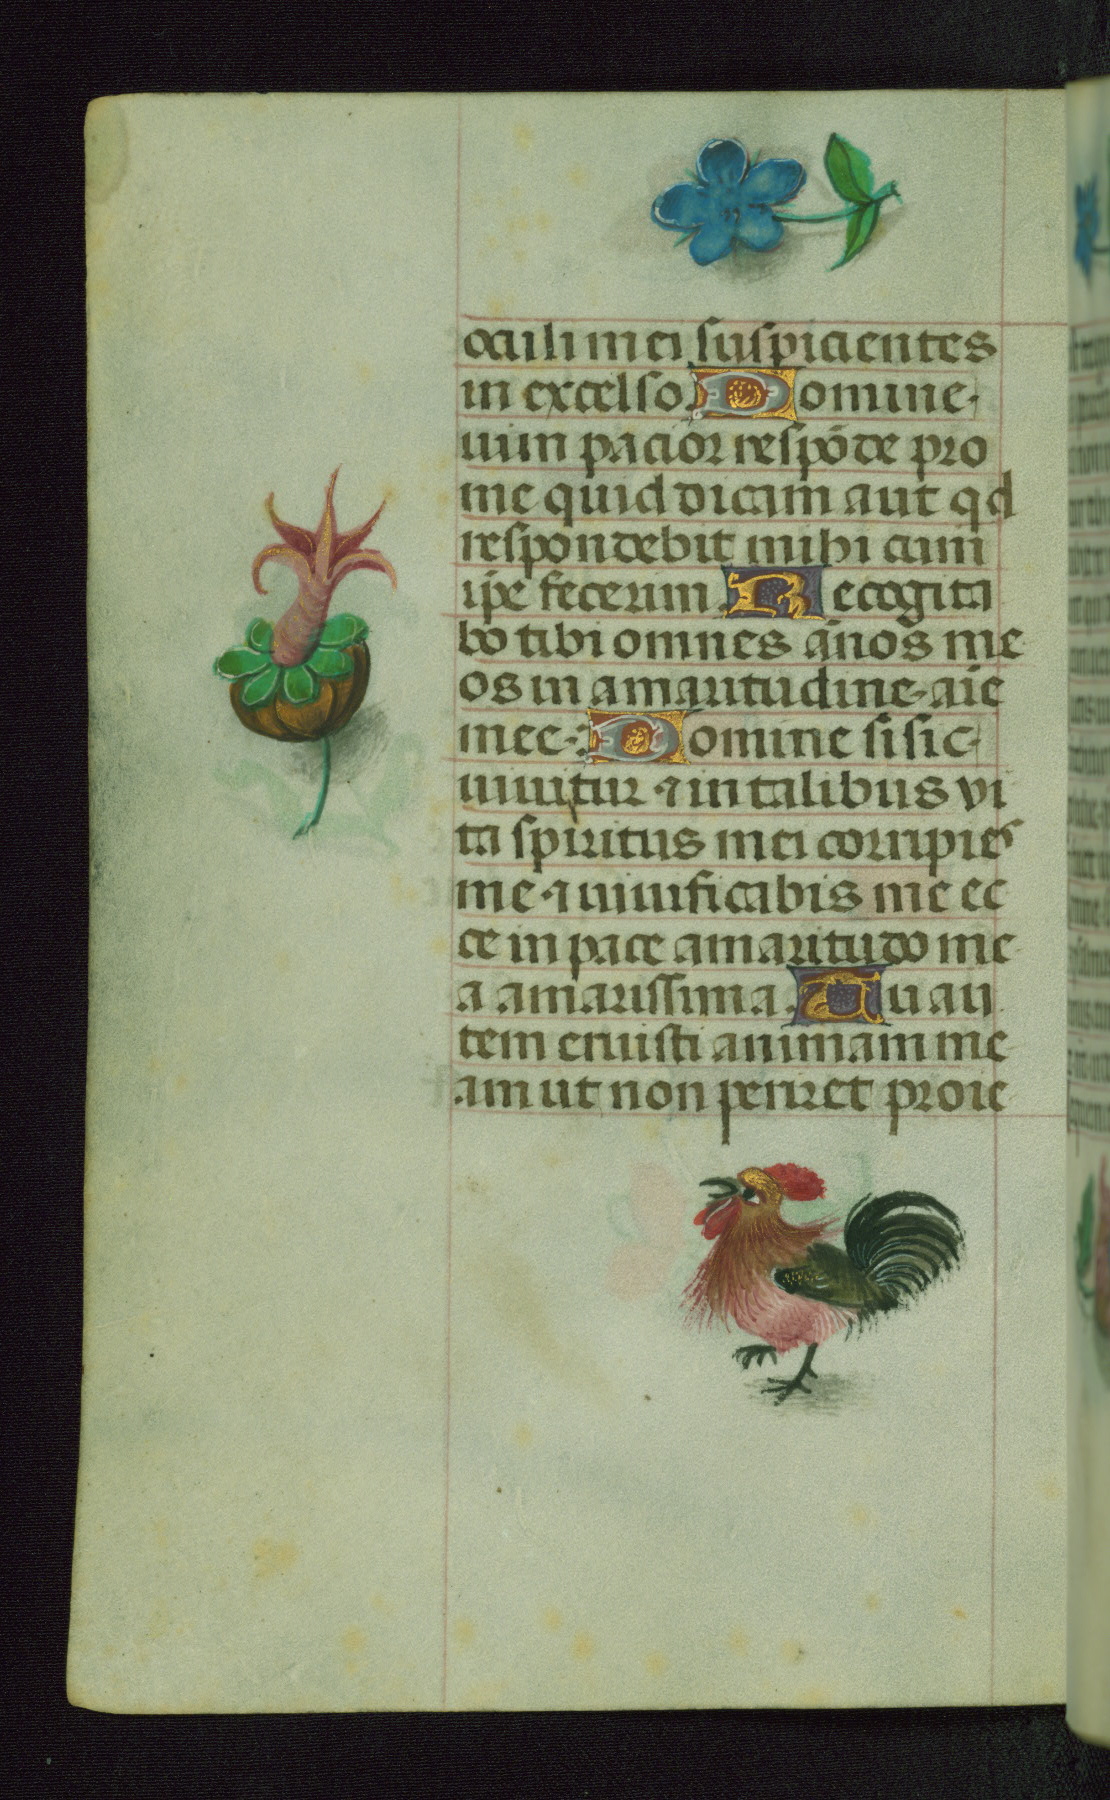 oculi mei suspicientes
in excelso. Domine
uim pacior respōde pro
me quid dicam aut qd
respondebit mihi cum
ip̄e fecerim. Recogita
bo tibi omnes ān̄os me
os in amaritudine aīe
mee. Domine si sic
uiuitur ⁊ in talibus vi
ta spiritus mei corripies
me ⁊ uiuificabis me ec
ce in pace amaritudo me
a amarissima. Tu au
tem eruisti animam me
am ut non periret proie